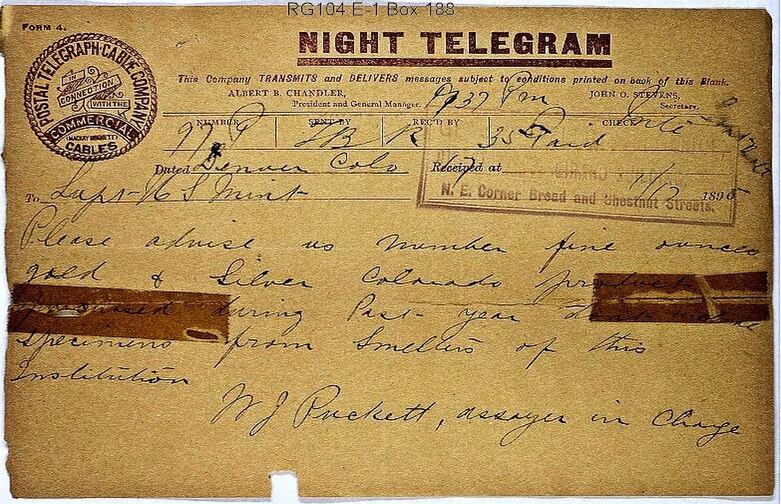 RG104 E-1 Box 188
FORM 4.
NIGHT TELEGRAM
POSTAL TELEGRAPH-CABLE COMPANY
IN CONNECTION WITH THE
COMMERCIAL
(MACKAY-BENNETT)
CABLES
This Company TRANSMITS and DELIVERS messages subject to conditions printed on back of this Blank.
ALBERT B. CHANDLER, JOHN O. STEVENS,
President and General Manager. Secretary.
937 Pm
NUMBER SENT BY REC'D BY CHECK
35 Paid
Dated Denver Colo Received at
To Supt U S Mint 189
N. E. Corner Broad and Chestnut Streets.
Please advise us number fine ounces
gold & Silver Colorado product
purchased during Past year
Specimens from Smelters of this
Institution
W J Puckett, assayer in Charge